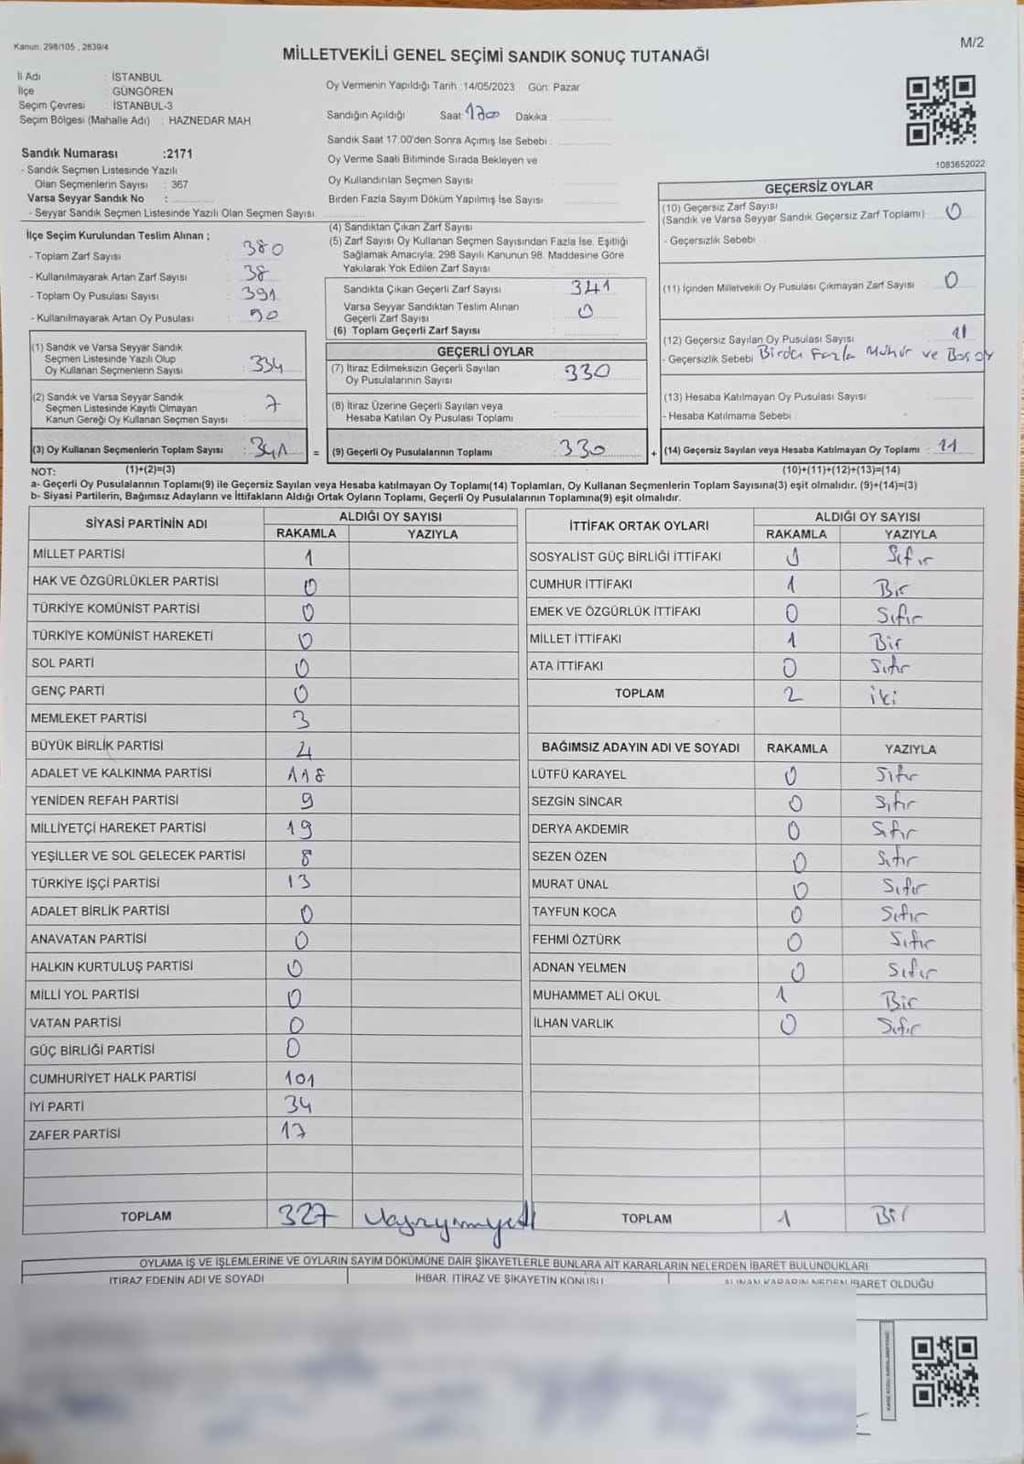 Kanun: 298/105 , 2839/4
M/2
MİLLETVEKİLİ GENEL SEÇİMİ SANDIK SONUÇ TUTANAĞI
İl Adı : İSTANBUL
İlçe : GÜNGÖREN
Seçim Çevresi : İSTANBUL-3
Seçim Bölgesi (Mahalle Adı) : HAZNEDAR MAH.
Sandık Numarası :2171
- Sandık Seçmen Listesinde Yazılı
Olan Seçmenlerin Sayısı : 367
Varsa Seyyar Sandık No :
- Seyyar Sandık Seçmen Listesinde Yazılı Olan Seçmen Sayısı
İlçe Seçim Kurulundan Teslim Alınan ;
- Toplam Zarf Sayısı : 380
- Kullanılmayarak Artan Zarf Sayısı : 38
- Toplam Oy Pusulası Sayısı : 391
- Kullanılmayarak Artan Oy Pusulası : 50
(1) Sandık ve Varsa Seyyar Sandık
Seçmen Listesinde Yazılı Olup
Oy Kullanan Seçmenlerin Sayısı : 334
(2) Sandık ve Varsa Seyyar Sandık
Seçmen Listesinde Kayıtlı Olmayan
Kanun Gereği Oy Kullanan Seçmen Sayısı : 7
(3) Oy Kullanan Seçmenlerin Toplam Sayısı : 341 =
Oy Vermenin Yapıldığı Tarih :14/05/2023 Gün: Pazar
Sandığın Açıldığı Saat: 1700 Dakika
Sandık Saat 17.00'den Sonra Açımış İse Sebebi :
Oy Verme Saati Bitiminde Sırada Bekleyen ve
Oy Kullandırılan Seçmen Sayısı :
Birden Fazla Sayım Döküm Yapılmış İse Sayısı :
(4) Sandıktan Çıkan Zarf Sayısı
(5) Zarf Sayısı Oy Kullanan Seçmen Sayısından Fazla İse, Eşitliği
Sağlamak Amacıyla; 298 Sayılı Kanunun 98. Maddesine Göre
Yakılarak Yok Edilen Zarf Sayısı
Sandıkta Çıkan Geçerli Zarf Sayısı 341
Varsa Seyyar Sandıktan Teslim Alınan
Geçerli Zarf Sayısı 0
(6) Toplam Geçerli Zarf Sayısı
GEÇERLİ OYLAR
(7) İtiraz Edilmeksizin Geçerli Sayılan
Oy Pusulalarının Sayısı 330
(8) İtiraz Üzerine Geçerli Sayılan veya
Hesaba Katılan Oy Pusulası Toplamı
(9) Geçerli Oy Pusulalarının Toplamı 330 +
1083652022
GEÇERSİZ OYLAR
(10) Geçersiz Zarf Sayısı
(Sandık ve Varsa Seyyar Sandık Geçersiz Zarf Toplamı) 0
- Geçersizlik Sebebi :
(11) İçinden Milletvekili Oy Pusulası Çıkmayan Zarf Sayısı 0
(12) Geçersiz Sayılan Oy Pusulası Sayısı 11
- Geçersizlik Sebebi : Birden Fazla Mühür ve Boş oy
(13) Hesaba Katılmayan Oy Pusulası Sayısı
- Hesaba Katılmama Sebebi :
(14) Geçersiz Sayılan veya Hesaba Katılmayan Oy Toplamı 11
NOT: (1)+(2)=(3) (10)+(11)+(12)+(13)=(14)
a- Geçerli Oy Pusulalarının Toplamı(9) ile Geçersiz Sayılan veya Hesaba katılmayan Oy Toplamı(14) Toplamları, Oy Kullanan Seçmenlerin Toplam Sayısına(3) eşit olmalıdır. (9)+(14)=(3)
b- Siyasi Partilerin, Bağımsız Adayların ve İttifakların Aldığı Ortak Oyların Toplamı, Geçerli Oy Pusulalarının Toplamına(9) eşit olmalıdır.
SİYASİ PARTİNİN ADI ALDIĞI OY SAYISI
RAKAMLA YAZIYLA
MİLLET PARTİSİ 1
HAK VE ÖZGÜRLÜKLER PARTİSİ 0
TÜRKİYE KOMÜNİST PARTİSİ 0
TÜRKİYE KOMÜNİST HAREKETİ 0
SOL PARTİ 0
GENÇ PARTİ 0
MEMLEKET PARTİSİ 3
BÜYÜK BİRLİK PARTİSİ 4
ADALET VE KALKINMA PARTİSİ 118
YENİDEN REFAH PARTİSİ 9
MİLLİYETÇİ HAREKET PARTİSİ 19
YEŞİLLER VE SOL GELECEK PARTİSİ 8
TÜRKİYE İŞÇİ PARTİSİ 13
ADALET BİRLİK PARTİSİ 0
ANAVATAN PARTİSİ 0
HALKIN KURTULUŞ PARTİSİ 0
MİLLİ YOL PARTİSİ 0
VATAN PARTİSİ 0
GÜÇ BİRLİĞİ PARTİSİ 0
CUMHURİYET HALK PARTİSİ 101
İYİ PARTİ 34
ZAFER PARTİSİ 17
TOPLAM 327
İTTİFAK ORTAK OYLARI ALDIĞI OY SAYISI
RAKAMLA YAZIYLA
SOSYALİST GÜÇ BİRLİĞİ İTTİFAKI 0 Sıfır
CUMHUR İTTİFAKI 1 Bir
EMEK VE ÖZGÜRLÜK İTTİFAKI 0 Sıfır
MİLLET İTTİFAKI 1 Bir
ATA İTTİFAKI 0 Sıfır
TOPLAM 2 iki
BAĞIMSIZ ADAYIN ADI VE SOYADI RAKAMLA YAZIYLA
LÜTFÜ KARAYEL 0 Sıfır
SEZGİN SİNCAR 0 Sıfır
DERYA AKDEMİR 0 Sıfır
SEZEN ÖZEN 0 Sıfır
MURAT ÜNAL 0 Sıfır
TAYFUN KOCA 0 Sıfır
FEHMİ ÖZTÜRK 0 Sıfır
ADNAN YELMEN 0 Sıfır
MUHAMMET ALİ OKUL 1 Bir
İLHAN VARLIK 0 Sıfır
TOPLAM 1 Bir
OYLAMA İŞ VE İŞLEMLERİNE VE OYLARIN SAYIM DÖKÜMÜNE DAİR ŞİKAYETLERLE BUNLARA AİT KARARLARIN NELERDEN İBARET BULUNDUKLARI
İTİRAZ EDENİN ADI VE SOYADI İHBAR, İTİRAZ VE ŞİKAYETİN KONUSU ALINAN KARARIN NEDEN İBARET OLDUĞU